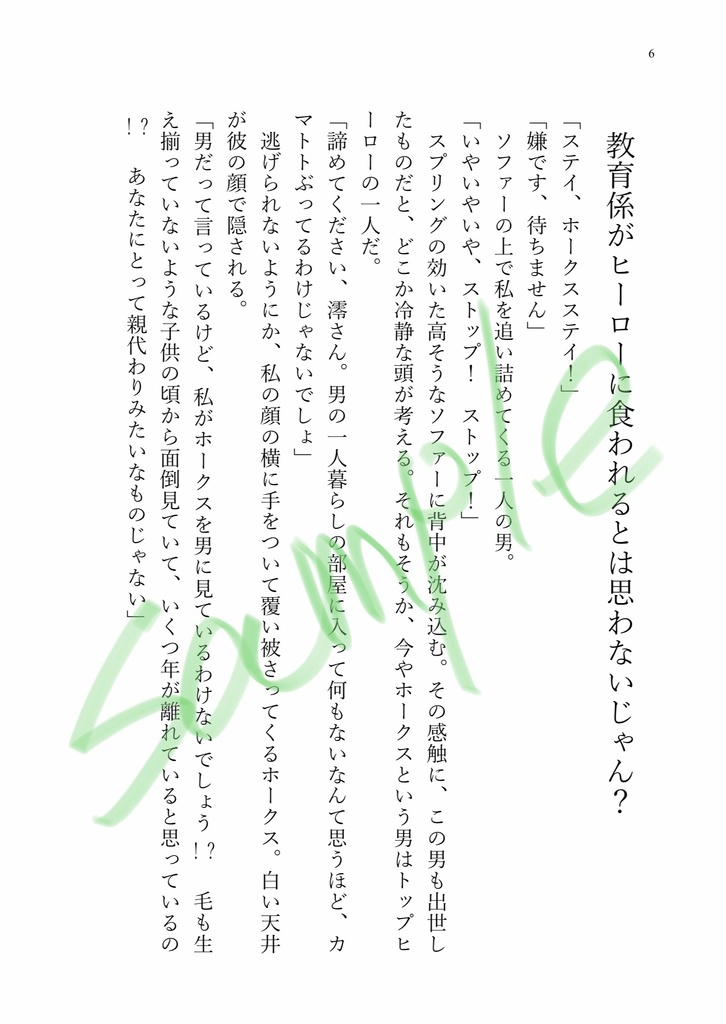 6
教育係がヒーローに食われるとは思わないじゃん？
「ステイ、ホークスステイ！」
「嫌です、待ちません」
ソファーの上で私を追い詰めてくる一人の男。
「いやいやいや、ストップ！　ストップ！」
スプリングの効いた高そうなソファーに背中が沈み込む。その感触に、この男も出世し
たものだと、どこか冷静な頭が考える。それもそうか、今やホークスという男はトップヒ
ーローの一人だ。
「諦めてください、澪さん。男の一人暮らしの部屋に入って何もないなんて思うほど、カ
マトトぶってるわけじゃないでしょ」
逃げられないようにか、私の顔の横に手をついて覆い被さってくるホークス。白い天井
が彼の顔で隠される。
「男だって言っているけど、私がホークスを男に見ているわけないでしょう!?　毛も生
え揃っていないような子供の頃から面倒見ていて、いくつ年が離れていると思っているの
!?　あなたにとって親代わりみたいなものじゃない」
Sample